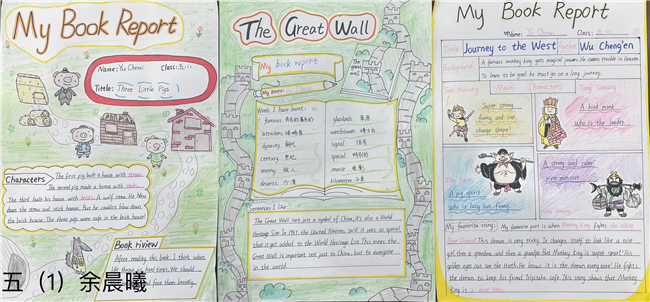 My Book Report
Name: Yu Chenxi Class: 五(1)
Tittle: Three Little Pigs
Characters
The first pig built a house with straw.
The second pig made a house with sticks.
The third built his house with bricks. A wolf came. He blew
down the straw and stick houses. But he couldn't blow down
the brick house. The three pigs were safe in the brick house!
Book riview
After reading this book, I think when
we have hard times. We should
face them bravely.
五（1）余晨曦
The Great Wall
My book report
The great wall
Words I have learnt:
famous
attackers
dynasty 朝代
century 世纪
enemy 敌人
deserts 沙漠
grasslands 草原
watchtower
signal 信号
special 特别的
movie 电影
kilometres 千米
Sentences I like:
The Great Wall isn't just a symbol of China; it's also a World
Heritage Site. In 1987, the United Nations said it was so special
that it got added to the World Heritage List. This means the
Great Wall is important not just to China, but to everyone
in the world.
My Book Report
Name: Yu Chenxi Class:
Title Journey to the West Author Wu Cheng'en
Background A famous monkey king gets magical powers. He causes trouble in Heaven.
To learn to be good, he must go on a long journey.
Main Characters
Sun Wukong
Super strong
funny and can
change shape!
Tang Sanzang
A kind monk
who is the leader.
A pig spirit
who is lazy but funny.
A strong and calm
river monster.
My favourite story: My favourite part is when Monkey King fights the White
Bone Demon! This demon is very tricky. It changes itself to look like a nice
girl, then a grandma and then a grandpa. But Monkey King is super smart! His
golden eyes can see the truth. He knows it is the demon every time! He fights
the demon to keep his friend Tripitaka safe. This story shows that Monkey
King is